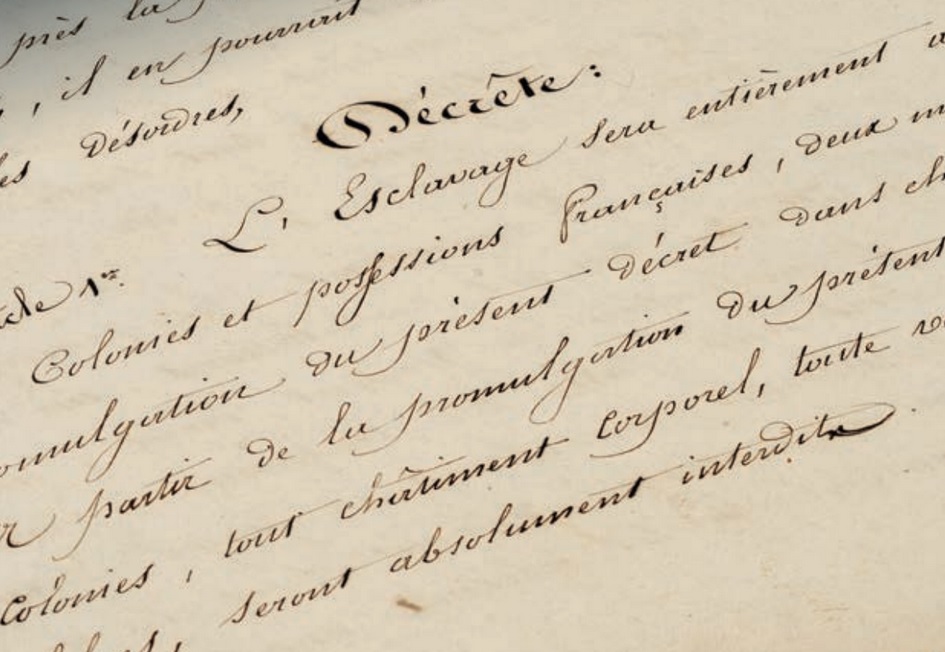 près la
, il en pourrait
les désordres,
Décrète:
cle 1er. L'Esclavage sera entièrement a
Colonies et possessions françaises, deux m
omulgation du présent décret dans ch
partir de la promulgation du présent
Colonies, tout châtiment corporel, toute v
seront absolument interdits.